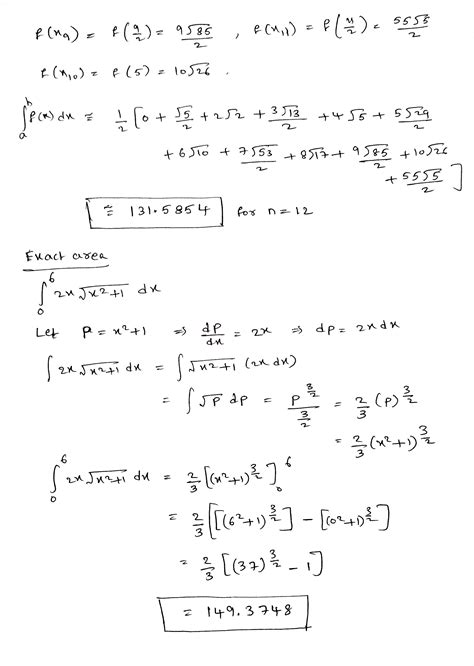 f(x₉) = f(9/2) = 9√85/2 , f(x₁₁) = f(11/2) = 55√5/2
f(x₁₀) = f(5) = 10√26 .
∫ₐᵇ f(x) dx ≅ 1/2 [0 + √5/2 + 2√2 + 3√13/2 + 4√5 + 5√29/2
+ 6√10 + 7√53/2 + 8√17 + 9√85/2 + 10√26
+ 55√5/2 ]
≅ 131.5854 for n = 12
Exact area
∫₀⁶ 2x √x²+1 dx
Let P = x²+1 ⇒ dP/dx = 2x ⇒ dP = 2x dx
∫ 2x √x²+1 dx = ∫ √x²+1 (2x dx)
= ∫ √P dP = P^(3/2) / (3/2) = 2/3 (P)^(3/2)
= 2/3 (x²+1)^(3/2)
∫₀⁶ 2x √x²+1 dx = 2/3 [(x²+1)^(3/2)]₀⁶
= 2/3 [[(6²+1)^(3/2)] - [(0²+1)^(3/2)]
= 2/3 [(37)^(3/2) - 1]
= 149.3748